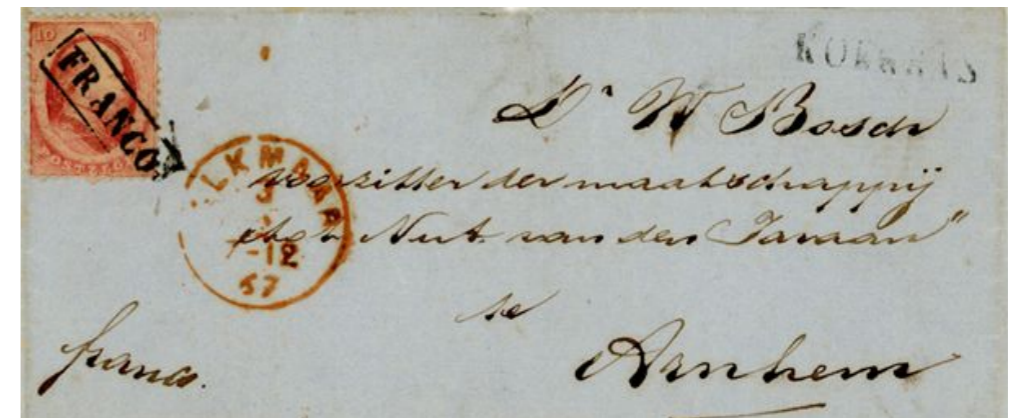 10 C
FRANCO
POSTZEGEL
ALKMAAR
3
7-12
67
Dr W Bosch
voorzitter der maatschappij
tot Nut van den Javaan"
te
Arnhem
franco.